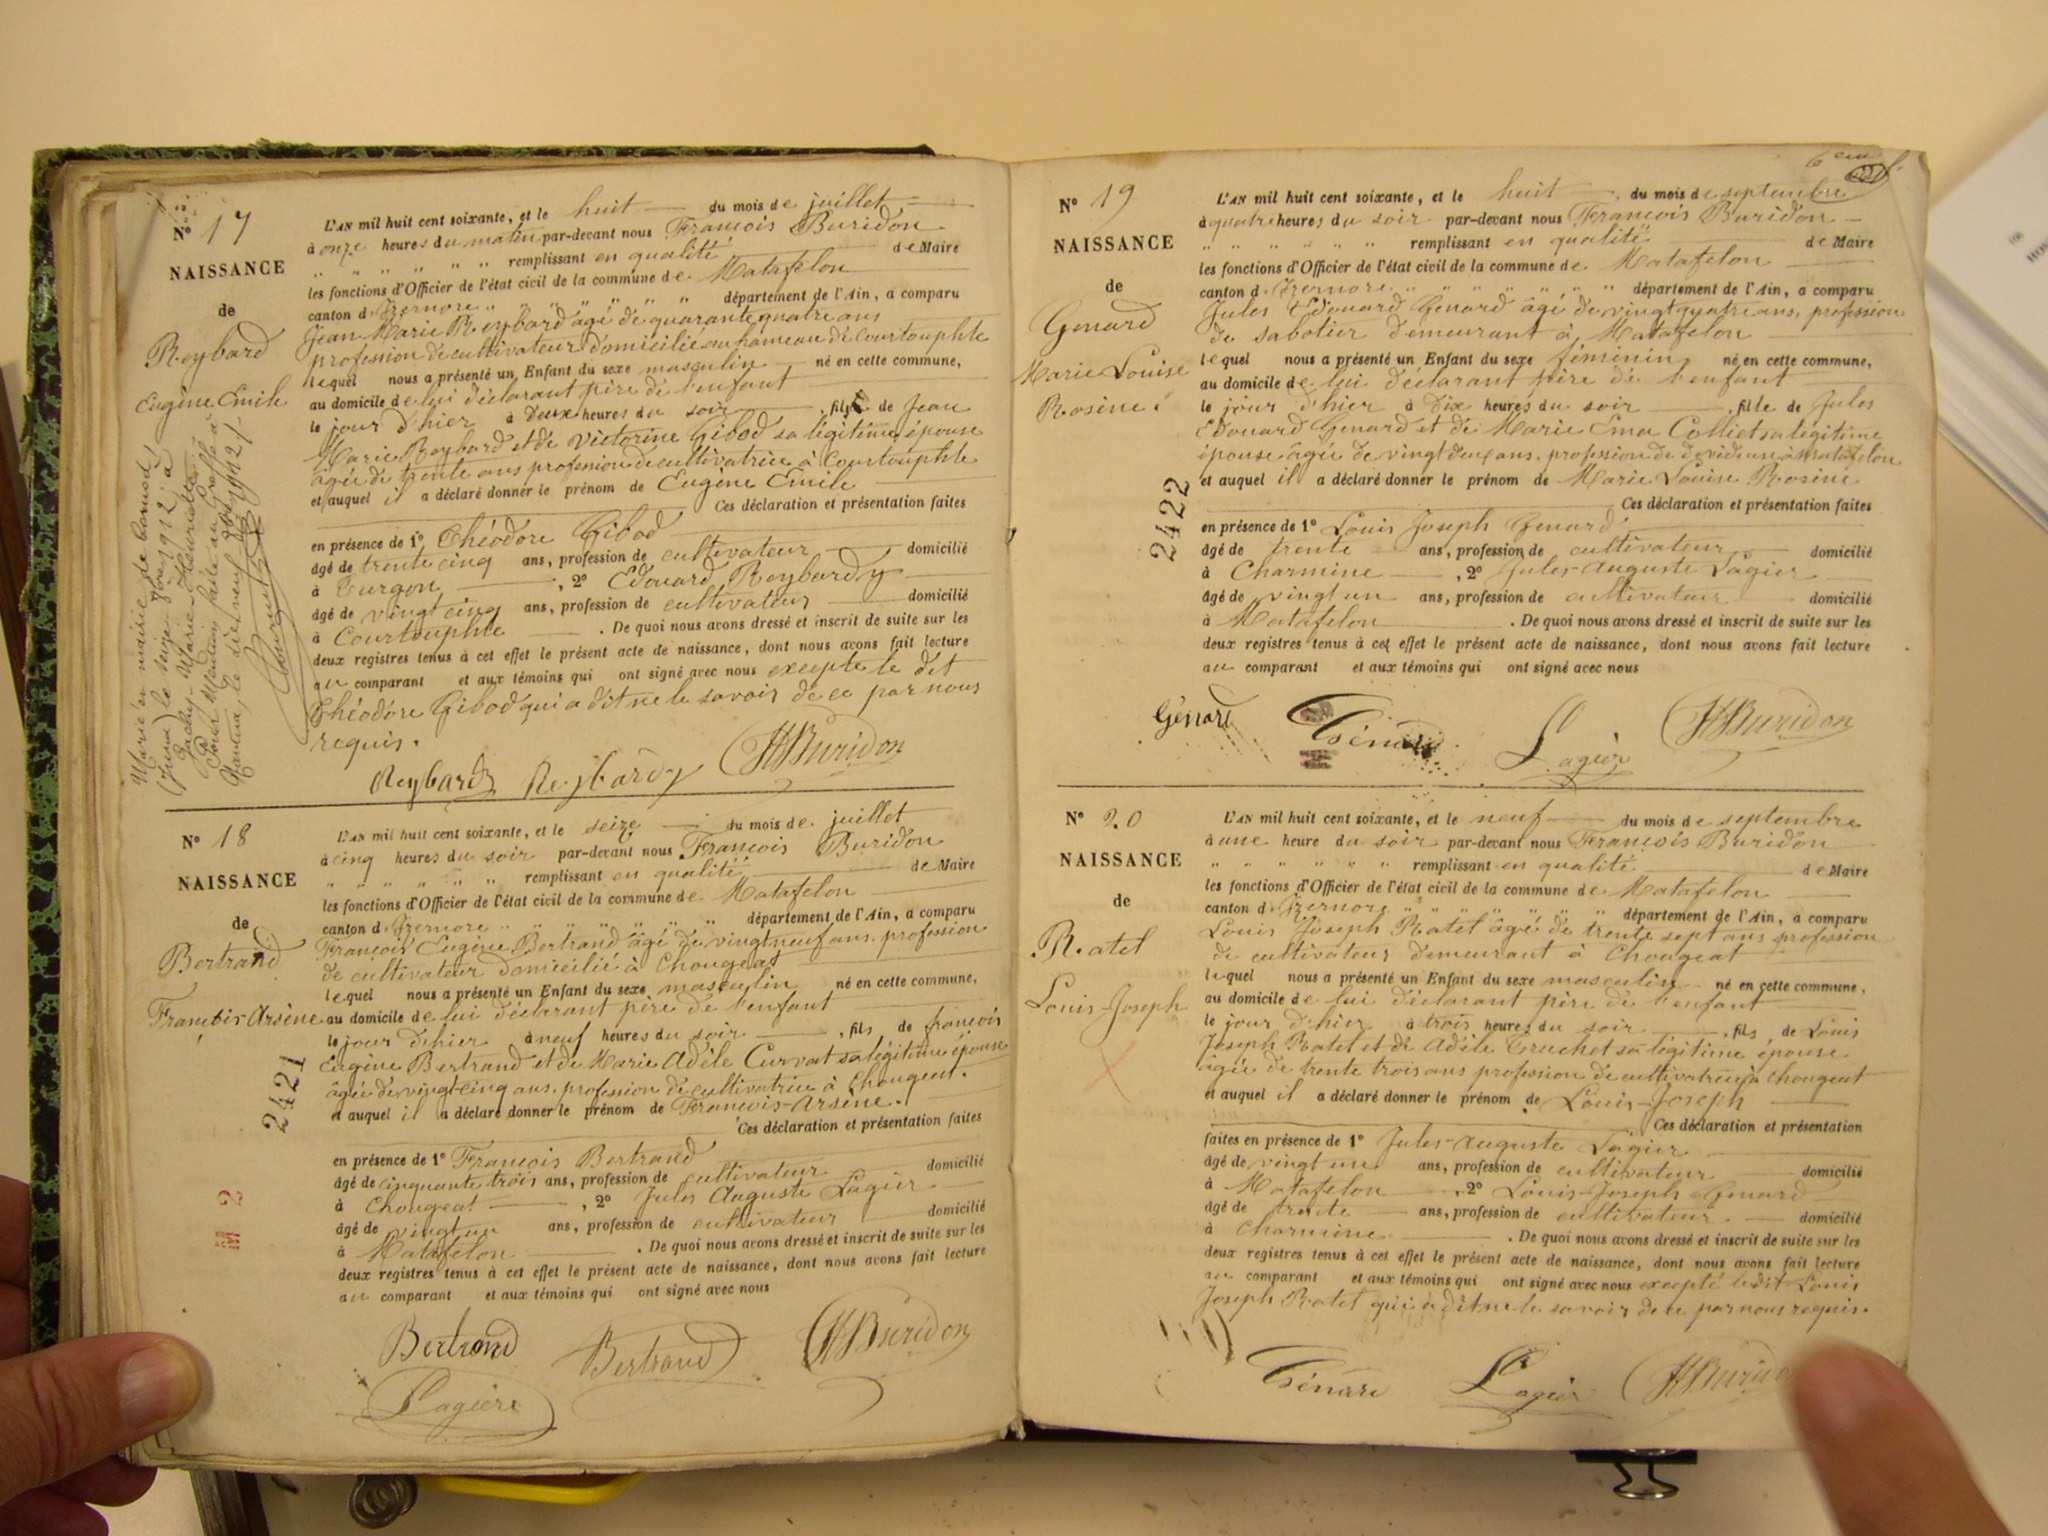 N° 17
NAISSANCE
de
Reybard
Eugène Emile
Marié en mairie de
(Jura) le seize 1912 à
Jacky - Marie-Henriette
Pour Mention faite au Greffe à
Nantua, le dix neuf 1912
L'AN mil huit cent soixante, et le huit du mois de juillet
à onze heures du matin par-devant nous François Buridon
" " " " " " remplissant en qualité de Maire
les fonctions d'Officier de l'état civil de la commune de Matafelon
canton d'Izernore " " " " " " département de l'Ain, a comparu
Jean Marie Reybard âgé de quarante quatre ans
profession de cultivateur domicilié au hameau de Courtouphle
lequel nous a présenté un Enfant du sexe masculin né en cette commune,
au domicile de lui déclarant père de l'enfant
le jour d'hier à Deux heures du soir , fils de Jean
Marie Reybard et de Victorine Gibod sa légitime épouse
âgée de trente ans profession de cultivatrice à Courtouphle
et auquel il a déclaré donner le prénom de Eugène Emile
Ces déclaration et présentation faites
en présence de 1° Théodore Gibod
âgé de trente cinq ans, profession de cultivateur domicilié
à Turgon , 2° Edouard Reybardy
âgé de vingt cinq ans, profession de cultivateur domicilié
à Courtouphle . De quoi nous avons dressé et inscrit de suite sur les
deux registres tenus à cet effet le présent acte de naissance, dont nous avons fait lecture
au comparant et aux témoins qui ont signé avec nous excepté le dit
Théodore Gibod qui a dit ne le savoir de ce par nous
requis.
Reybard Reybardy Buridon
N° 18
NAISSANCE
de
Bertrand
François-Arsène
2421
L'AN mil huit cent soixante, et le seize du mois de juillet
à cinq heures du soir par-devant nous François Buridon
" " " " " " remplissant en qualité de Maire
les fonctions d'Officier de l'état civil de la commune de Matafelon
canton d'Izernore " " " " " " département de l'Ain, a comparu
François Eugène Bertrand âgé de vingt neuf ans, profession
de cultivateur domicilié à Chougeat
lequel nous a présenté un Enfant du sexe masculin né en cette commune,
au domicile de lui déclarant père de l'enfant
le jour d'hier à neuf heures du soir , fils de françois
Eugène Bertrand et de Marie Adèle Curvat sa légitime épouse
âgée de vingt-cinq ans, profession de cultivatrice à Chougeat.
et auquel il a déclaré donner le prénom de François-Arsène.
Ces déclaration et présentation faites
en présence de 1° François Bertrand
âgé de cinquante trois ans, profession de cultivateur domicilié
à Chougeat , 2° Jules Auguste Lagier
âgé de vingt un ans, profession de cultivateur domicilié
à Matafelon . De quoi nous avons dressé et inscrit de suite sur les
deux registres tenus à cet effet le présent acte de naissance, dont nous avons fait lecture
au comparant et aux témoins qui ont signé avec nous
Bertrand Bertrand Buridon
Lagier
N° 19
NAISSANCE
de
Genard
Marie Louise
Rosine.
2422
L'AN mil huit cent soixante, et le huit du mois de septembre
à quatre heures du soir par-devant nous François Buridon
" " " " " " remplissant en qualité de Maire
les fonctions d'Officier de l'état civil de la commune de Matafelon
canton d'Izernore " " " " " " département de l'Ain, a comparu
Jules Edouard Genard âgé de vingt quatre ans, profession
de sabotier demeurant à Matafelon
lequel nous a présenté un Enfant du sexe féminin né en cette commune,
au domicile de lui déclarant père de l'enfant
le jour d'hier à dix heures du soir , fille de Jules
Edouard Genard et de Marie Ema Colliet sa légitime
épouse âgée de vingt deux ans, profession de dévideuse à Matafelon
et auquel il a déclaré donner le prénom de Marie Louise Rosine
Ces déclaration et présentation faites
en présence de 1° Louis Joseph Genard
âgé de trente ans, profession de cultivateur domicilié
à Charmine , 2° Jules-Auguste Lagier
âgé de vingt un ans, profession de cultivateur domicilié
à Matafelon . De quoi nous avons dressé et inscrit de suite sur les
deux registres tenus à cet effet le présent acte de naissance, dont nous avons fait lecture
au comparant et aux témoins qui ont signé avec nous
Génard Génard Lagier Buridon
N° 20
NAISSANCE
de
Ratel
Louis-Joseph
L'AN mil huit cent soixante, et le neuf du mois de septembre
à une heure du soir par-devant nous François Buridon
" " " " " " remplissant en qualité de Maire
les fonctions d'Officier de l'état civil de la commune de Matafelon
canton d'Izernore " " " " " " département de l'Ain, a comparu
Louis Joseph Ratel âgé de trente sept ans profession
de cultivateur demeurant à Chougeat
lequel nous a présenté un Enfant du sexe masculin né en cette commune,
au domicile de lui déclarant père de l'enfant
le jour d'hier à trois heures du soir , fils de Louis
Joseph Ratel et de Adèle Truchet sa légitime épouse
âgée de trente trois ans profession de cultivatrice à Chougeat
et auquel il a déclaré donner le prénom de Louis-Joseph
Ces déclaration et présentation
faites en présence de 1° Jules-Auguste Lagier
âgé de vingt un ans, profession de cultivateur domicilié
à Matafelon , 2° Louis-Joseph Genard
âgé de trente ans, profession de cultivateur domicilié
à Charmine . De quoi nous avons dressé et inscrit de suite sur les
deux registres tenus à cet effet le présent acte de naissance, dont nous avons fait lecture
au comparant et aux témoins qui ont signé avec nous excepté le dit Louis
Joseph Ratel qui a dit ne le savoir de ce par nous requis.
Génard Lagier